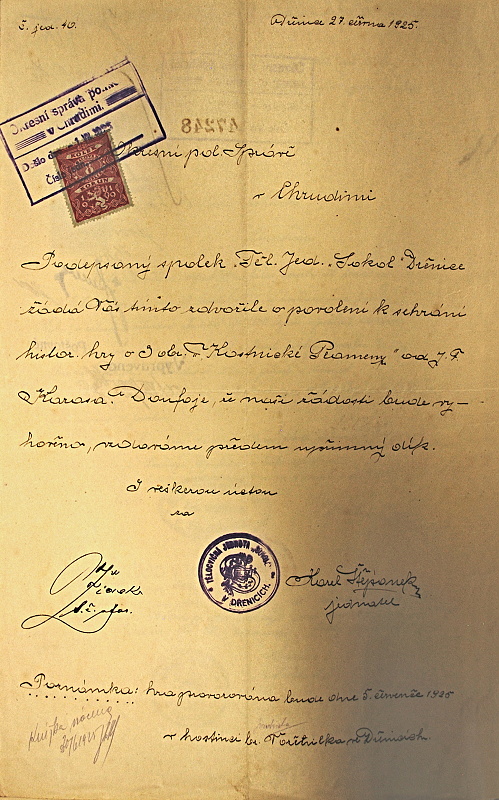 č. jed. 40.
Dřenice 27. června 1925.
Okresní správa poli
v Chrudimi.
Došlo dne
47248
KOLEK
KORUN
Okresní pol. Správě
v Chrudimi
Podepsaný spolek „Těl. Jed. „Sokol" Dřenice
žádá Vás tímto zdvořile o povolení k sehrání
histor. hry o 3 obr. „Kostnické Plameny" od J. F.
Karasa." Doufaje, že naší žádosti bude vy-
hověno, vzdáváme předem upřímný dík.
S veškerou úctou
za
TĚLOCVIČNÁ JEDNOTA „SOKOL"
V DŘENICÍCH.
Karel Štěpánek
jednatel
t. č. 
Poznámka: hra provozována bude dne 5. července 1925
v hostinci br. v Dřenicích.
30/6 1925